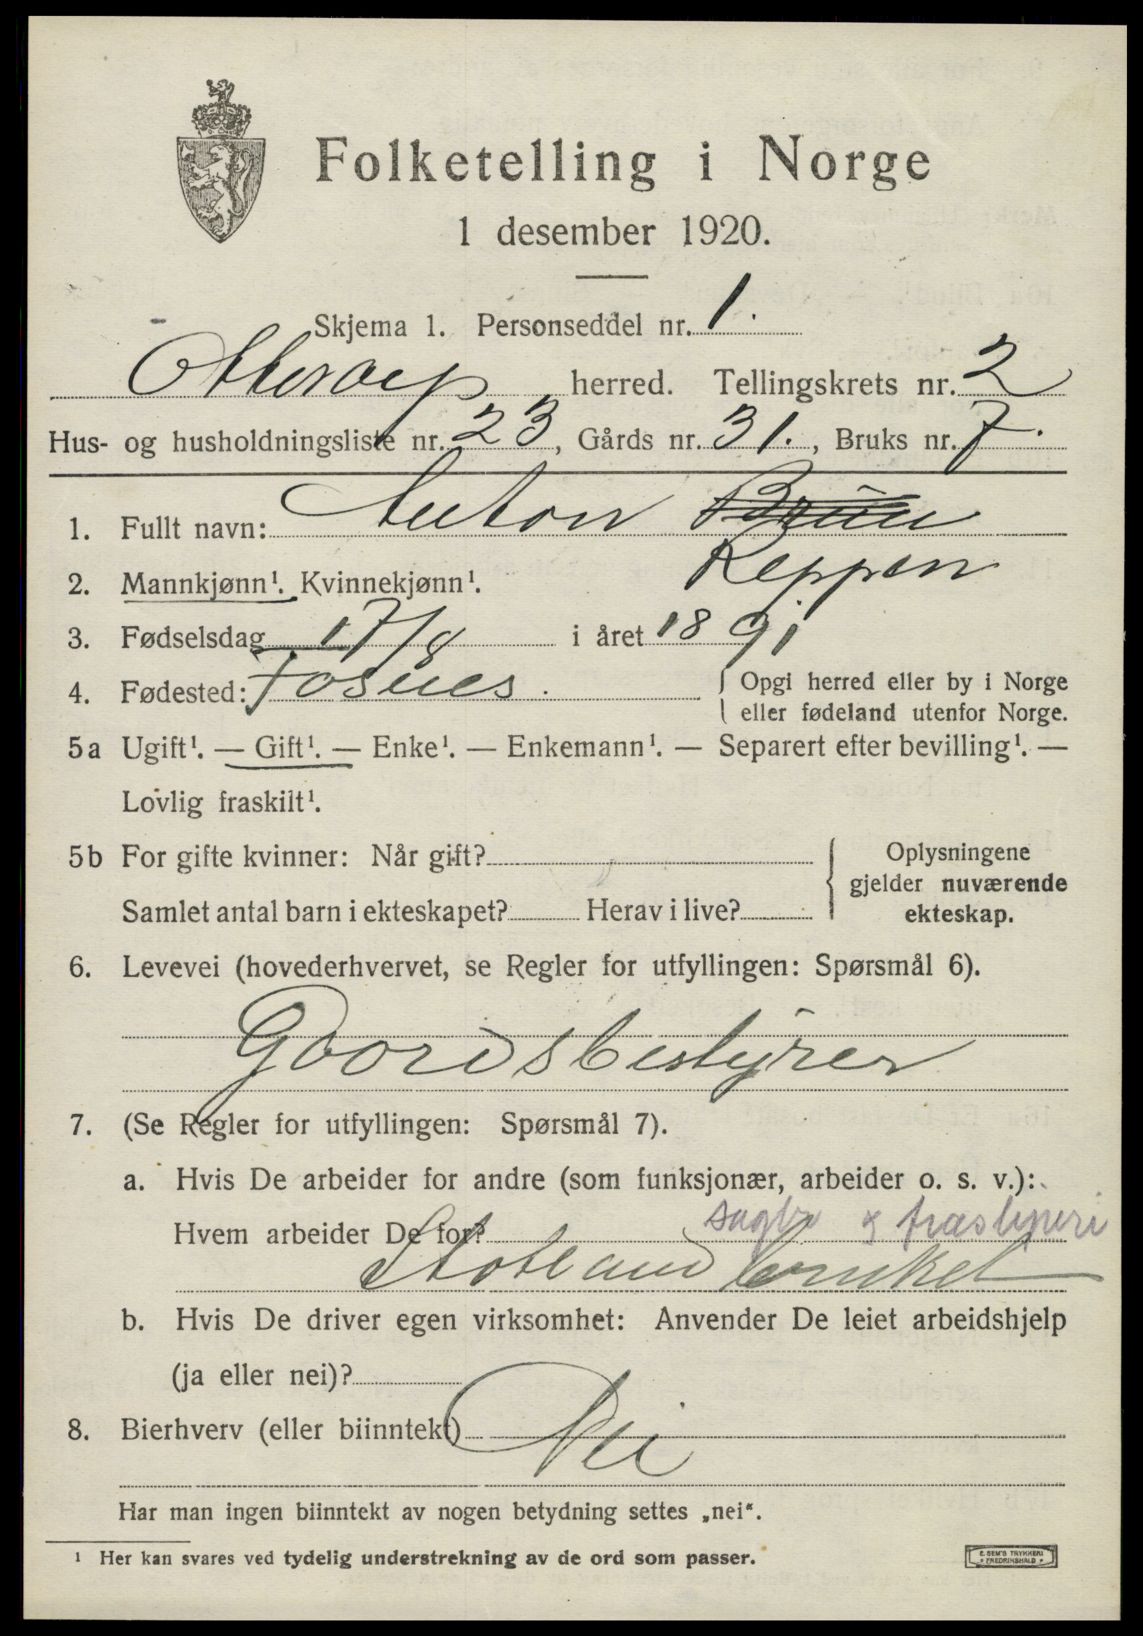 Folketelling i Norge
1 desember 1920.
Skjema 1. Personseddel nr. 1.
Otterøy herred. Tellingskrets nr. 2
Hus- og husholdningsliste nr. 23, Gårds nr. 31., Bruks nr. 7.
1. Fullt navn: Anton Bruu
Reppen
2. Mannkjønn¹. Kvinnekjønn¹.
3. Fødselsdag 17/8 i året 1891
4. Fødested: Fosnes. Opgi herred eller by i Norge
eller fødeland utenfor Norge.
5a Ugift¹. — Gift¹. — Enke¹. — Enkemann¹. — Separert efter bevilling¹. —
Lovlig fraskilt¹.
5b For gifte kvinner: Når gift? Oplysningene
gjelder nuværende
Samlet antal barn i ekteskapet? Herav i live? ekteskap.
6. Levevei (hovederhvervet, se Regler for utfyllingen: Spørsmål 6).
Goordsbestyrer
7. (Se Regler for utfyllingen: Spørsmål 7).
a. Hvis De arbeider for andre (som funksjonær, arbeider o. s. v.):
Hvem arbeider De for? sagbr & træsliperi
b. Hvis De driver egen virksomhet: Anvender De leiet arbeidshjelp
(ja eller nei)?
8. Bierhverv (eller biinntekt) Nei
Har man ingen biinntekt av nogen betydning settes „nei“.
¹ Her kan svares ved tydelig understrekning av de ord som passer.
E. SEM'S TRYKKERI
FREDRIKSHALD